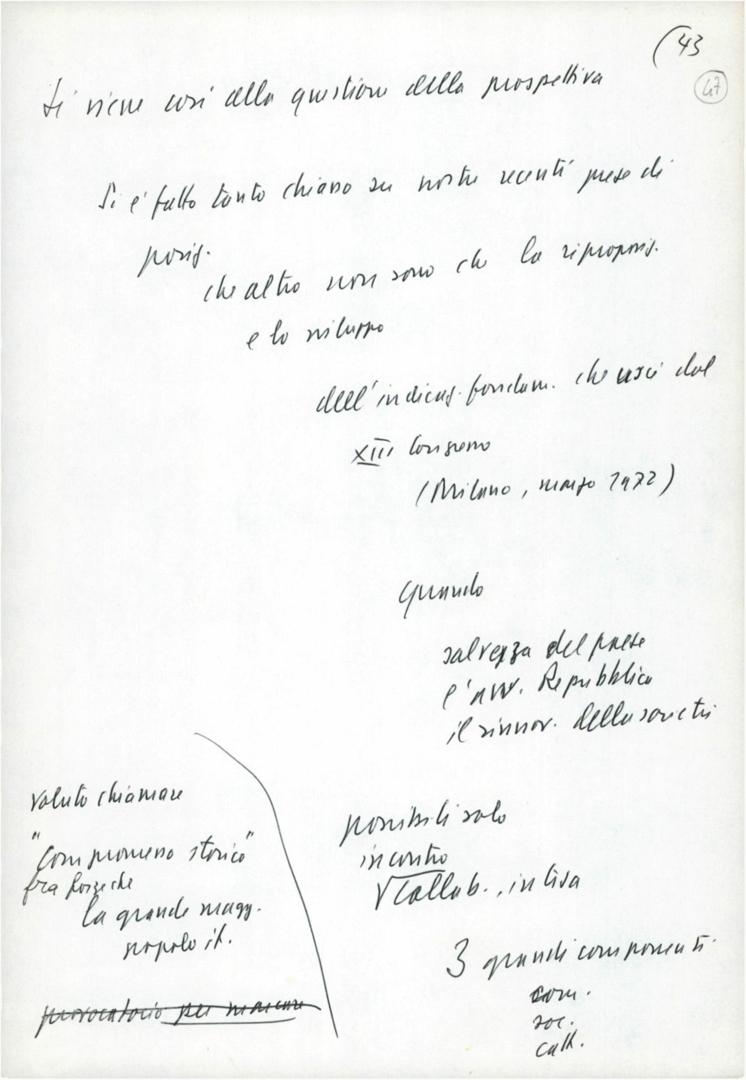 (43
47
Si viene così alla questione della prospettiva
Si è fatto tanto chiaro su nostre recenti prese di
posiz.
che altro non sono che la riproposiz.
e lo sviluppo
dell'indicaz. fondam. che uscì dal
XIII Congresso
(Milano, marzo 1972)
quando
salvezza del paese
e avv. Repubblica
il rinnov. della società
possibili solo
incontro
collab., intesa
3 grandi componenti
com.
soc.
catt.
voluto chiamare
"Compromesso storico"
fra forze che
la grande magg.
popolo it.
provocatorio per